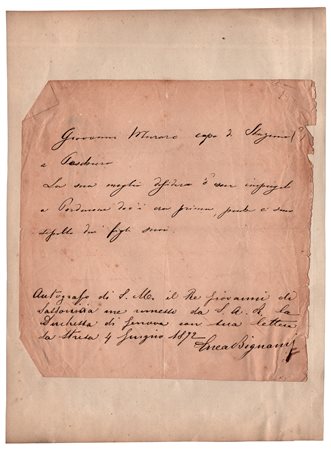 Giovanni Moraro capo di Stazione
a
La sua moglie desidera d'esser impiegato
a Pordenone dov'è era prima, perchè è sono
sepolti dei figli suoi.
Autografo di S. M. il Re Giovanni di
Sassonia a me rimesso da S. A. R. la
Duchessa di Genova con sua lettera
da Stresa 4 Giugno 1872
Enea Bignami